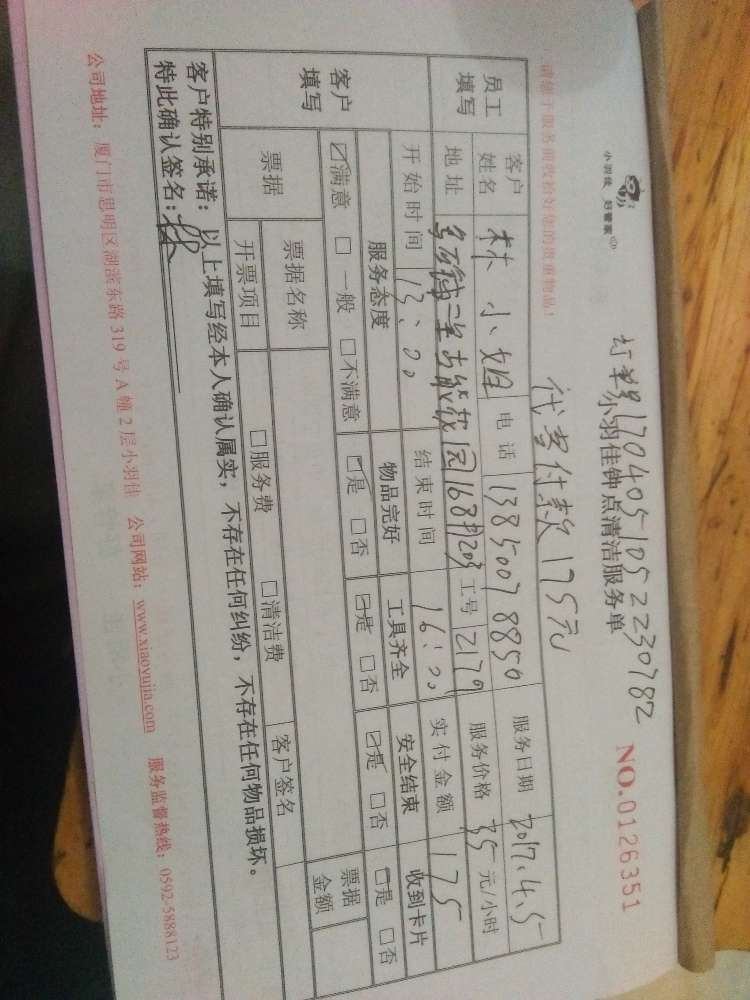 小羽佳 好管家
订单号1704051052230782
小羽佳钟点清洁服务单
NO.0126351
请您于服务前收拾好您的贵重物品！
代责付款175元
员工填写
客户姓名 林小姐 电话 13850078850 服务日期 2017.4.5
地址 168号1203 工号 2179 服务价格 35 元/小时
开始时间 13:00 结束时间 16:00 实付金额 175
客户填写
服务态度 物品完好 工具齐全 安全结束 收到卡片
☑满意 □一般 □不满意 ☑是 □否 ☑是 □否 ☑是 □否 □是 □否
票据 票据名称 客户签名 票据金额
开票项目 □服务费 □清洁费
客户特别承诺：以上填写经本人确认属实，不存在任何纠纷，不存在任何物品损坏。
特此确认签名：林
公司地址：厦门市思明区湖滨东路319号A幢2层小羽佳 公司网站：www.xiaoyujia.com 服务监督热线：0592-5888123